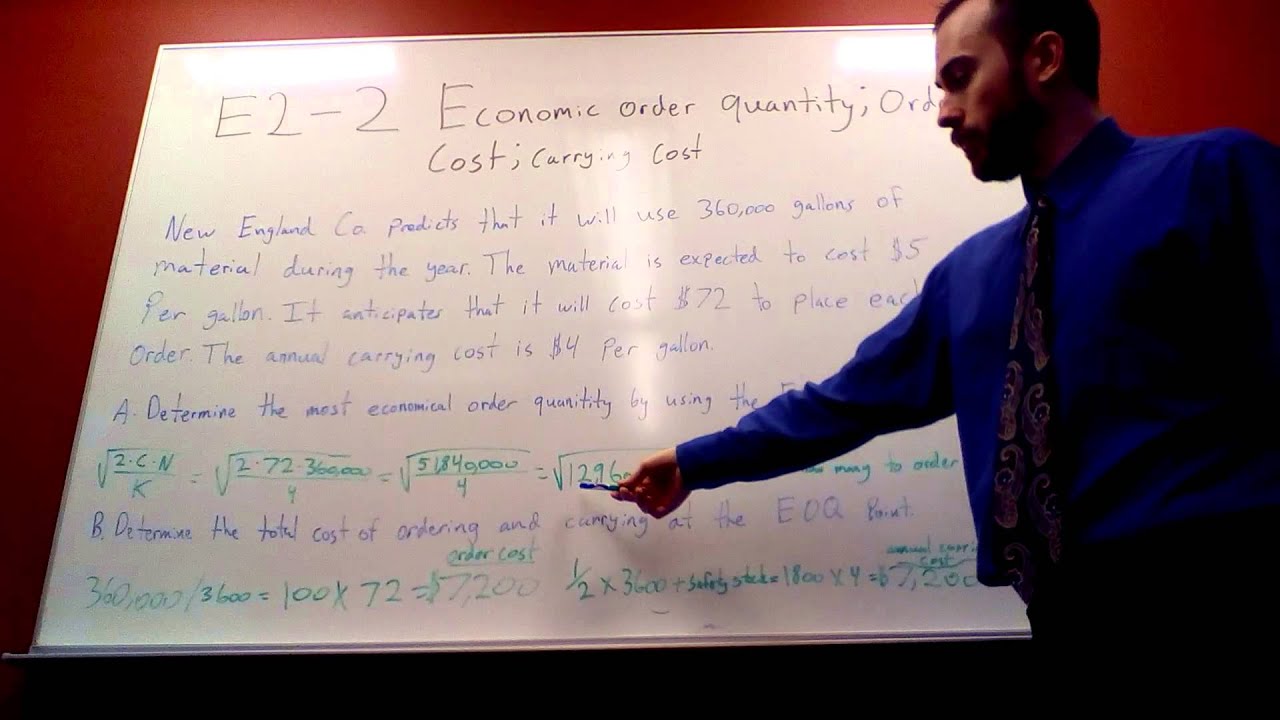 E2-2 Economic order quantity; Ord
Cost; Carrying Cost
New England Co. Predicts that it will use 360,000 gallons of
material during the year. The material is expected to cost $5
Per gallon. It anticipates that it will cost $72 to place each
Order. The annual carrying cost is $4 Per gallon.
A. Determine the most economical order quanitity by using the
√2·C·N/K = √2·72·360,000/4 = √51,840,000/4 = √1296 many to order
B. Determine the total cost of ordering and carrying at the EOQ Point.
order cost annual carr
cost
360,000/3600 = 100 X 72 = $7,200 1/2 X 3600 + Safety stock = 1800 X 4 = $7,200